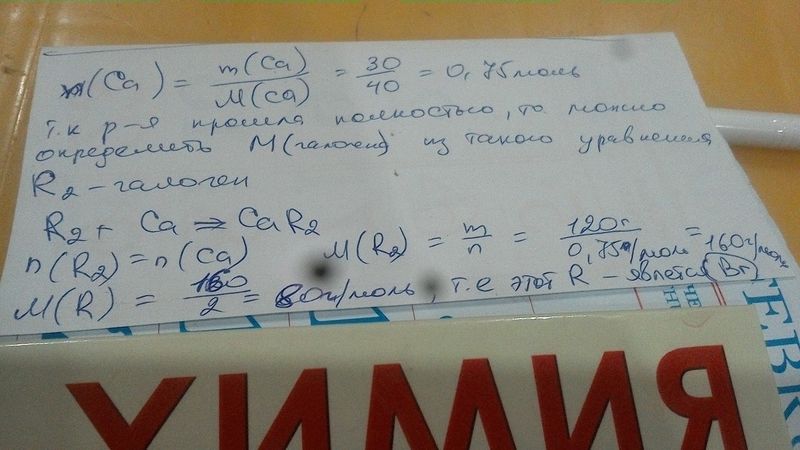 n(Ca) = m(Ca)/M(Ca) = 30/40 = 0,75 моль
т.к р-я прошла полностью, то можно
определить M(галоген) из такого уравнения
R2 - галоген
R2 + Ca => CaR2
n(R2) = n(Ca) M(R2) = m/n = 120г/0,75г/моль = 160г/моль
M(R) = 160/2 = 80г/моль, т.е этот R - явлется Br
ХИМИЯ